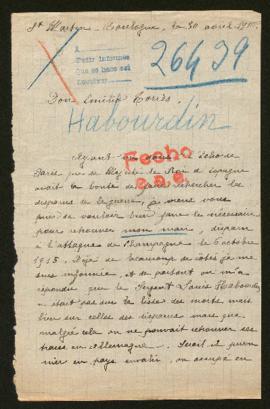 St Martin-Boulogne, le 30 avril 191
A
Pedir informes
que se hace así
26439
Habourdin
Fecho
Ayant vu dans l'Echo de
Paris que Sa Majesté le Roi d'Espagne
avait la bonté de faire rechercher les
disparus de la guerre, je viens vous
prier de vouloir bien faire le nécessaire
pour retrouver mon mari, disparu
à l'attaque de Champagne le 6 octobre
1915. Déjà de beaucoup de côtés je me
suis informée, et de partout on m'a
répondu que le Sergent Louis Habourdin
n'était pas sur la liste des morts mais
bien sur celles des disparus mais que
malgré cela on ne pouvait retrouver ses
traces en Allemagne. Serait-il prison-
nier en pays envahi, ou occupé en